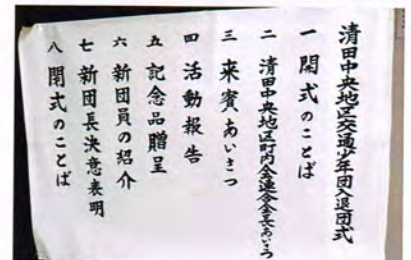 清田中央地区交通少年団入退団式
一 開式のことば
二 清田中央地区町内会連合会長あいさつ
三 来賓あいさつ
四 活動報告
五 記念品贈呈
六 新団員の紹介
七 新団長決意表明
八 閉式のことば